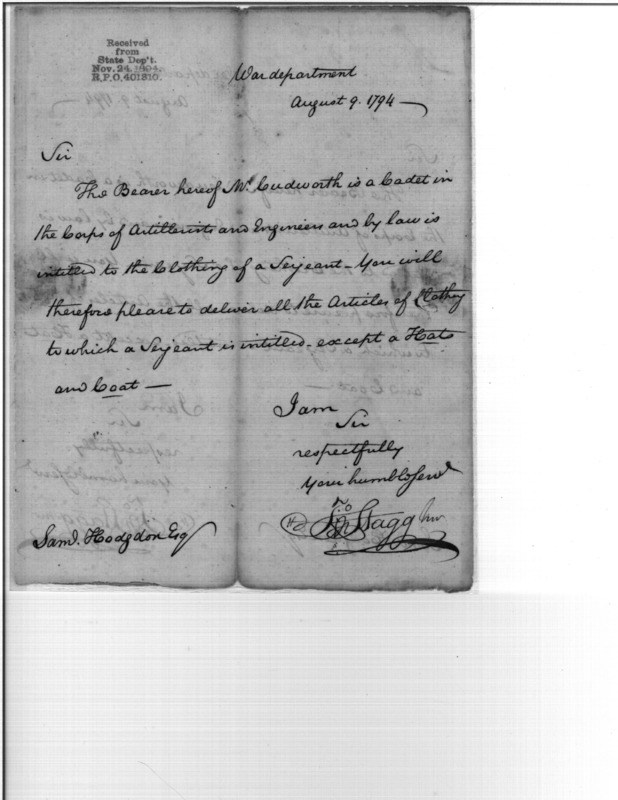 Received
from
State Dep't.
Nov. 24, 1894.
R.P.O. 401310.
War department
August 9. 1794
Sir
The Bearer hereof Mr. Cudworth is a Cadet in
the Corps of Artillerists and Engineers and by law is
intitled to the Clothing of a Serjeant - You will
therefore please to deliver all the Articles of Clothing
to which a Serjeant is intitled - except a Hat
and Coat —
I am
Sir
respectfully
Your humble Servt
Stagg Junr
Saml. Hodgdon Esq